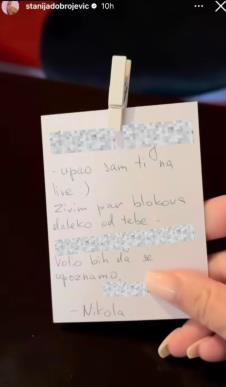 stanijadobrojevic 10h
- upao sam ti na
live :)
živim par blokova
daleko od tebe.
Volo bih da se
upoznamo.
- Nikola